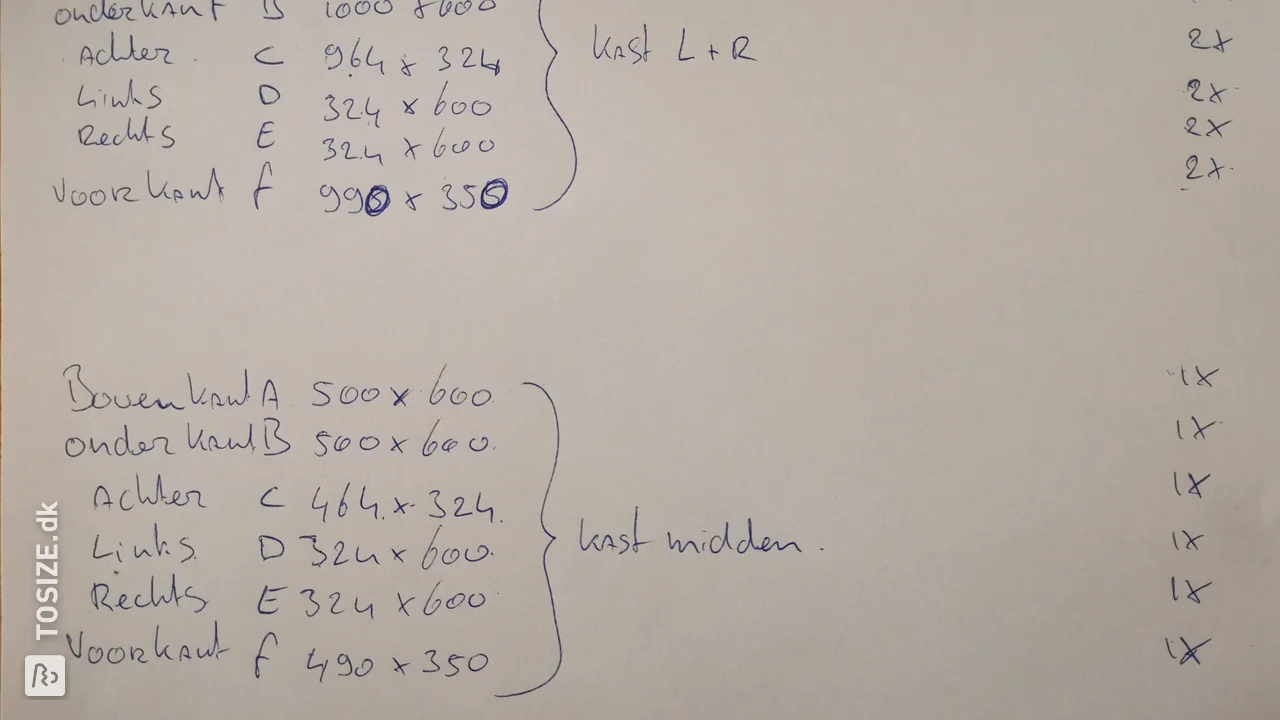 onderkant B 1000 x 600
Achter C 964 x 324 Kast L + R 2x
Links D 324 x 600 2x
Rechts E 324 x 600 2x
Voorkant f 990 x 350 2x
Bovenkant A 500 x 600 1x
onderkant B 500 x 600 1x
Achter C 464 x 324 1x
Links D 324 x 600 kast midden. 1x
Rechts E 324 x 600 1x
Voorkant f 490 x 350 1x
TOSIZE.dk